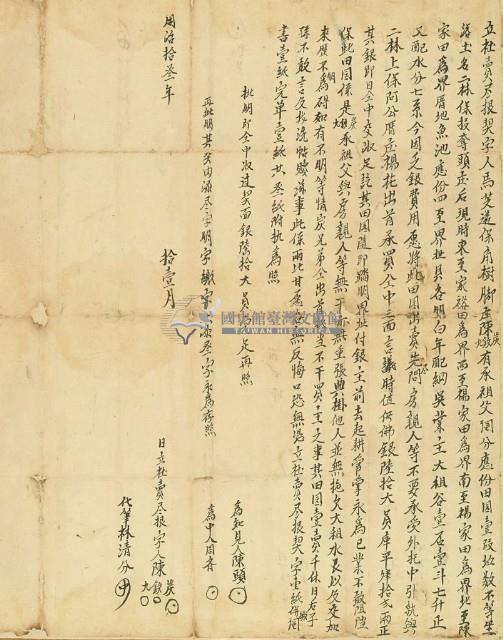 立杜賣尽根契字人馬芝遴保崩樹脚庄陳有承祖父䦰分應份田園壹段坵数不等坐
落土名二林保後寮頭庄后現時東至家田為界西至楊家田為界南至楊家田為界北至陳
家田為界厝地魚池應份四至界址具各明白年配納吳業主大租谷壹石壹斗七升正
又配水分七系今因乏銀費用愿將此田園出賣先問房親人等不要承受外托中引就與
二林上保阿公厝庄楊出首承買仝中三面言議時值價佛銀陸拾大員庫平肆拾貳兩正
其銀即日仝中交收足訖其田園隨即踏明界址付銀主前去起耕管掌永為己業不敢阻
保此田園係是承祖父與房親人等無干亦無重張典掛他人並無拖欠大租水長以及交加
來歷不明為碍如有不明等情兄弟仝出首抵當不干買主之事其田園壹賣千休日后子
孫不敢言及找洗贖滋事此係兩比甘愿各無反悔口恐無憑立杜賣尽根契字壹紙併繳
書壹紙完單壹紙共叁紙付執為照
批明即仝中收過契面銀陸拾大員完足再照
再批明其契內添尽字明字繳字添叁字永為存照
為知見人陳頭
為中人周音
日立杜賣尽根字人陳
代筆林清分
同治拾叁年 拾壹月
國史館臺灣文獻館
TAIWAN HISTORICA